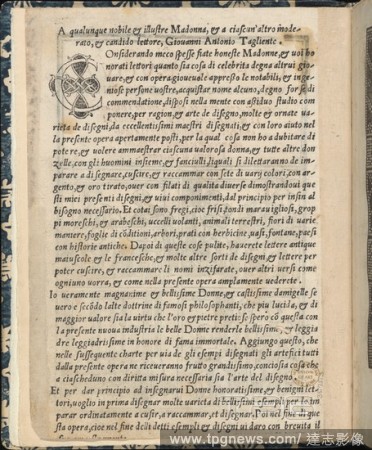 A qualunque nobile & illustre Madonna, & a ciascun'altro mode-
rato, & candido lettore, Giovanni Antonio Tagliente.
Considerando meco spesse fiate honeste Madonne, & voi ho
norati lettori quanto sia cosa di celebrita degna altrui gio-
vare, & con opera giouevole appresso le notabili, & in-
geniose persone vostre, acquistar nome alcuno, degno for se di
commendatione, disposi nella mente con assiduo studio com
ponere, per ragion, & arte de disegno, molte & ornate va
rieta de disegni, da eccellentissimi mastri disegnati, & con loro aiuto nel
la presente opera apertamente posti, per la qual cosa non ho a dubitare di
potere, & volere ammestrar ciascuna valorosa donna, & tutte altre don
zelle, con gli huomini insieme, & fanciulli, liquali si diletteranno de im
parare a disegnare, cuscire, & raccammar con sete di varij colori, con ar-
gento, & oro tirato, over con filati di qualita diverse dimostrandovi que
sti miei presenti disegni, & vivi componimenti, dal principio per insin al
bisogno necessario. Et cotai sono fregi, cioe frisi fondi maravigliosi, grop
pi moreschi, & arabeschi, uccelli volanti, animali terrestri, fiori di varie
maniere, foglie di cōditioni, arbori, prati con herbicine, vasi, fontane, paesi
con historie antiche. Dapoi di queste cose pulite, haverete lettere antique
maiuscole & le francesche, & molte altre sorti de disegni, & lettere per
poter cuscire, & raccammare li nomi inzifarate, over altri versi como
ogniuno vorra, & come nella presente opera amplamente vederete.
Io veramente magnanime & bellissime Donne, & castissime damigelle se
vero e secōdo lalte dottrine di famosi philosophanti, che piu lucida, & di
maggior valore sia la virtu che l'oro & pietre preti: se spero cō questa con
la presente nuova industria le belle Donne renderle bellissime, & leggia
dre leggiadrissime in honore di fama immortale. Aggiungo questo, che
nelle sussequente charte per via de gli esempi disegnati gli artefici tutti
dalla presente opera ne riceveranno frutto grandissimo, conciosia cosa che
a ciascheduno con diritta misura necessaria sia l'arte del disegno.
Et per dar principio ad insegnarvi Donne honoratissime, & benigni let-
tori, voglio in prima disegnar molte varieta di bellissimi esempli per lo im
parar ordinatamente a cusir, a raccammar, et disegnar. Poi nel fine di que
sta opera, cioe nel fine delli detti esempli & disegni vi daro con brevita il
www.tpgnews.com | 達志影像